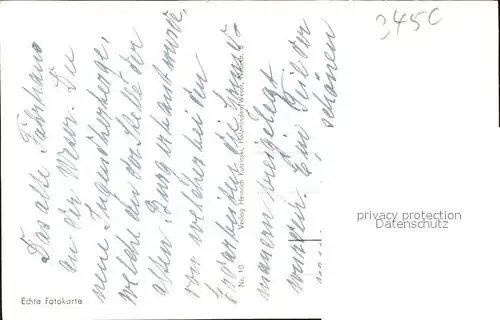 3450
Das alte Fährhaus
an der Weser. Die
neue Jugendherberge,
welche an der Stelle der
alten Burg erbaut wurde,
von welcher bei den
Erdarbeiten die
mauern freigelegt
wurden. Ein Teil der
schönen
Nr. 10 Verlag Heinrich Kutzinski, Holzminden/Weser,
Echte Fotokarte
privacy protection
Datenschutz